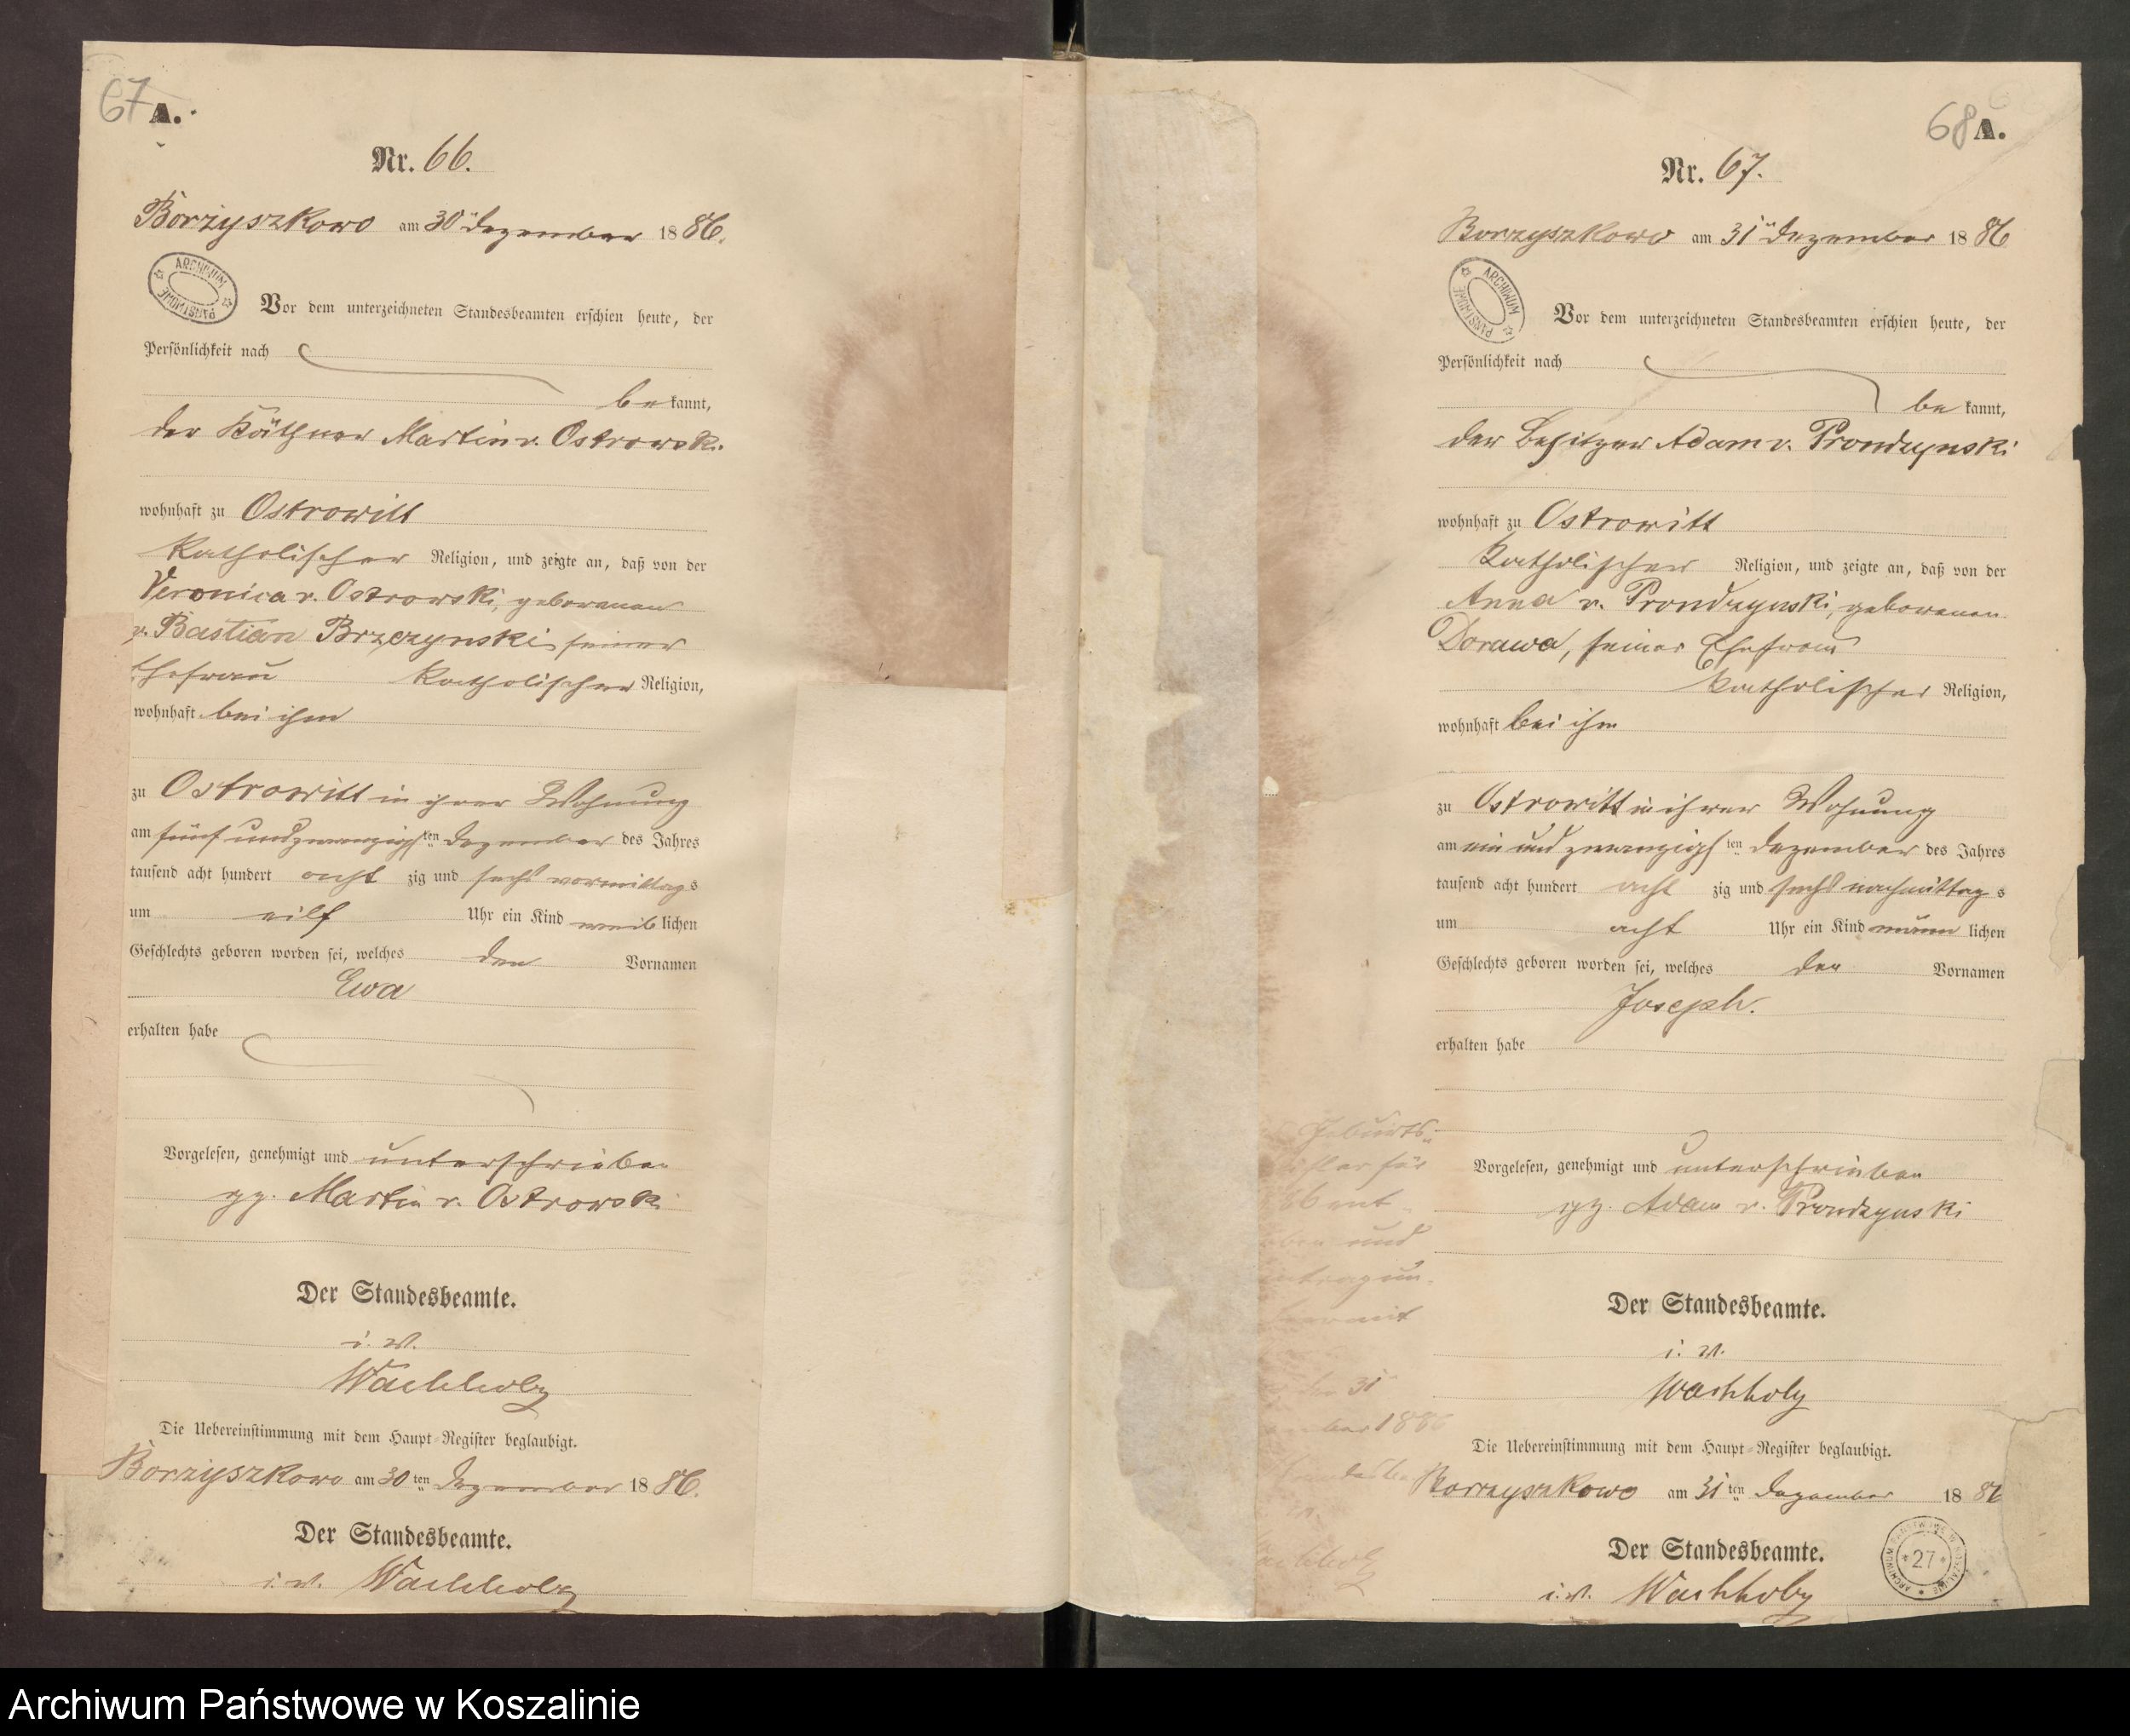 67 A.
Nr. 66.
Borzyszkowo am 30ten Dezember 1886.
ARCHIWUM PAŃSTWOWE
Vor dem unterzeichneten Standesbeamten erschien heute, der
Persönlichkeit nach
be kannt,
der Käthner Martin v. Ostrowski
wohnhaft zu Ostrowitt
katholischer Religion, und zeigte an, daß von der
Veronica v. Ostrowski, geborenen
v. Bastian Brzezynski seiner
Ehefrau katholischer Religion,
wohnhaft bei ihm
zu Ostrowitt in ihrer Wohnung
am fünf und zwanzigsten Dezember des Jahres
tausend acht hundert acht zig und sechs vormittags
um eilf Uhr ein Kind weiblichen
Geschlechts geboren worden sei, welches den Vornamen
Ewa
erhalten habe
Vorgelesen, genehmigt und unterschrieben
gz. Martin v. Ostrowski
Der Standesbeamte.
i. V.
Wachholz
Die Uebereinstimmung mit dem Haupt-Register beglaubigt.
Borzyszkowo am 30ten Dezember 1886.
Der Standesbeamte.
i. V. Wachholz
68 A.
Nr. 67.
Borzyszkowo am 31ten Dezember 1886
ARCHIWUM PAŃSTWOWE
Vor dem unterzeichneten Standesbeamten erschien heute, der
Persönlichkeit nach
be kannt,
der Besitzer Adam v. Prondzynski
wohnhaft zu Ostrowitt
katholischer Religion, und zeigte an, daß von der
Anna v. Prondzynski, geborenen
Dorawa, seiner Ehefrau
katholischer Religion,
wohnhaft bei ihm
zu Ostrowitt in ihrer Wohnung
am ein und zwanzigsten Dezember des Jahres
tausend acht hundert acht zig und sechs nachmittags
um acht Uhr ein Kind männlichen
Geschlechts geboren worden sei, welches den Vornamen
Joseph.
erhalten habe
Vorgelesen, genehmigt und unterschrieben
gz. Adam v. Prondzynski
Der Standesbeamte.
i. V.
Wachholz
Die Uebereinstimmung mit dem Haupt-Register beglaubigt.
Borzyszkowo am 31ten Dezember 1886
Der Standesbeamte.
i. V. Wachholz
Geburts-
für
und
31
1886
ARCHIWUM PAŃSTWOWE W KOSZALINIE
27
Archiwum Państwowe w Koszalinie